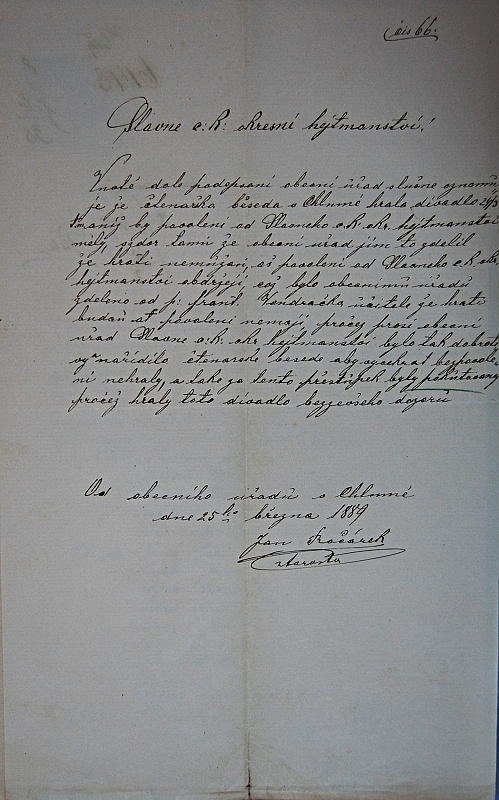 čís 66.
Slavne c: k: okresní hejtmanství!
Vnotě dole podepsaní obecní úřad slušne oznamu
je že čtenařka beseda v Chlumé hrala divadlo 24/3
t.m. aniž by povolení od Slavneho c. k. okr. hejtmanství
měly, vzdor tomu že obecní úřad jim to zdělil
že hrati nemužou, až povolení od Slavneho c. k. okr.
hejtmanství obdržejí, což bylo obecnímu úřadu
zdeleno od p: Frant. učitele že hrati
budou ať povolení nemají, pročež prosí obecní
úřad Slavne c: k: okr hejtmanství bylo tak dobrotivy
nařídilo čtenarske besedo aby vyckrat bezpovole
ní nehraly, a take za tento přestupek byly pokutovany
pročež hraly toto divadlo bezevšeho dozoru
Od obecního úřadu v Chlumé
dne 25ho března 1889
Jan
starosta